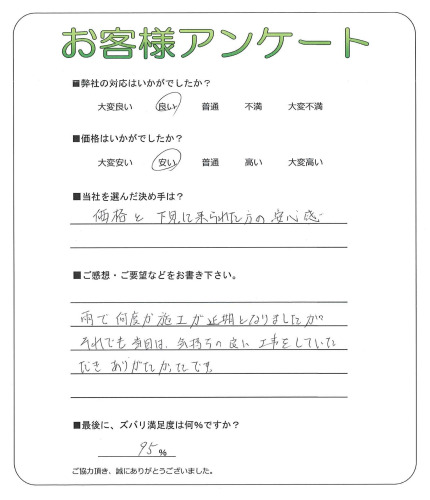 お客様アンケート
■弊社の対応はいかがでしたか？
大変良い 良い 普通 不満 大変不満
■価格はいかがでしたか？
大変安い 安い 普通 高い 大変高い
■当社を選んだ決め手は？
価格と下見に来られた方の安心感
■ご感想・ご要望などをお書き下さい。
雨で何度か施工が延期となりましたが
それでも当日は、気持ちの良い工事をしていた
だきありがたかったです。
■最後に、ズバリ満足度は何％ですか？
95％
ご協力頂き、誠にありがとうございました。